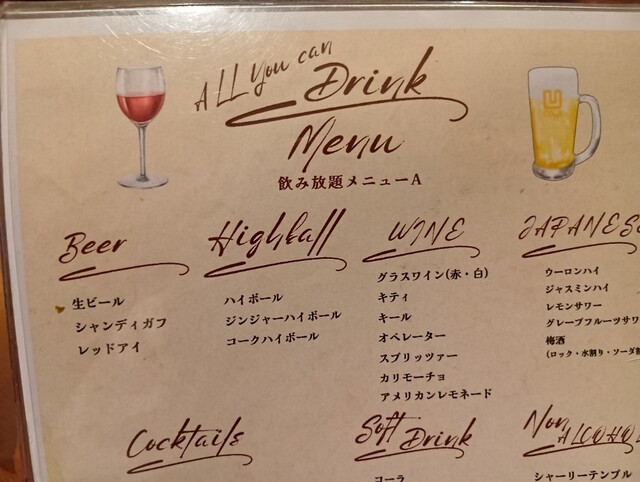 ALL You can
Drink
Menu
飲み放題メニューA
Beer
生ビール
シャンディガフ
レッドアイ
Highball
ハイボール
ジンジャーハイボール
コークハイボール
WINE
グラスワイン(赤・白)
キティ
キール
オペレーター
スプリッツァー
カリモーチョ
アメリカンレモネード
JAPANESE
ウーロンハイ
ジャスミンハイ
レモンサワー
グレープフルーツサワ
梅酒
(ロック・水割り・ソーダ
Cocktails
Soft Drink
コーラ
Non
ALCOHO
シャーリーテンプル